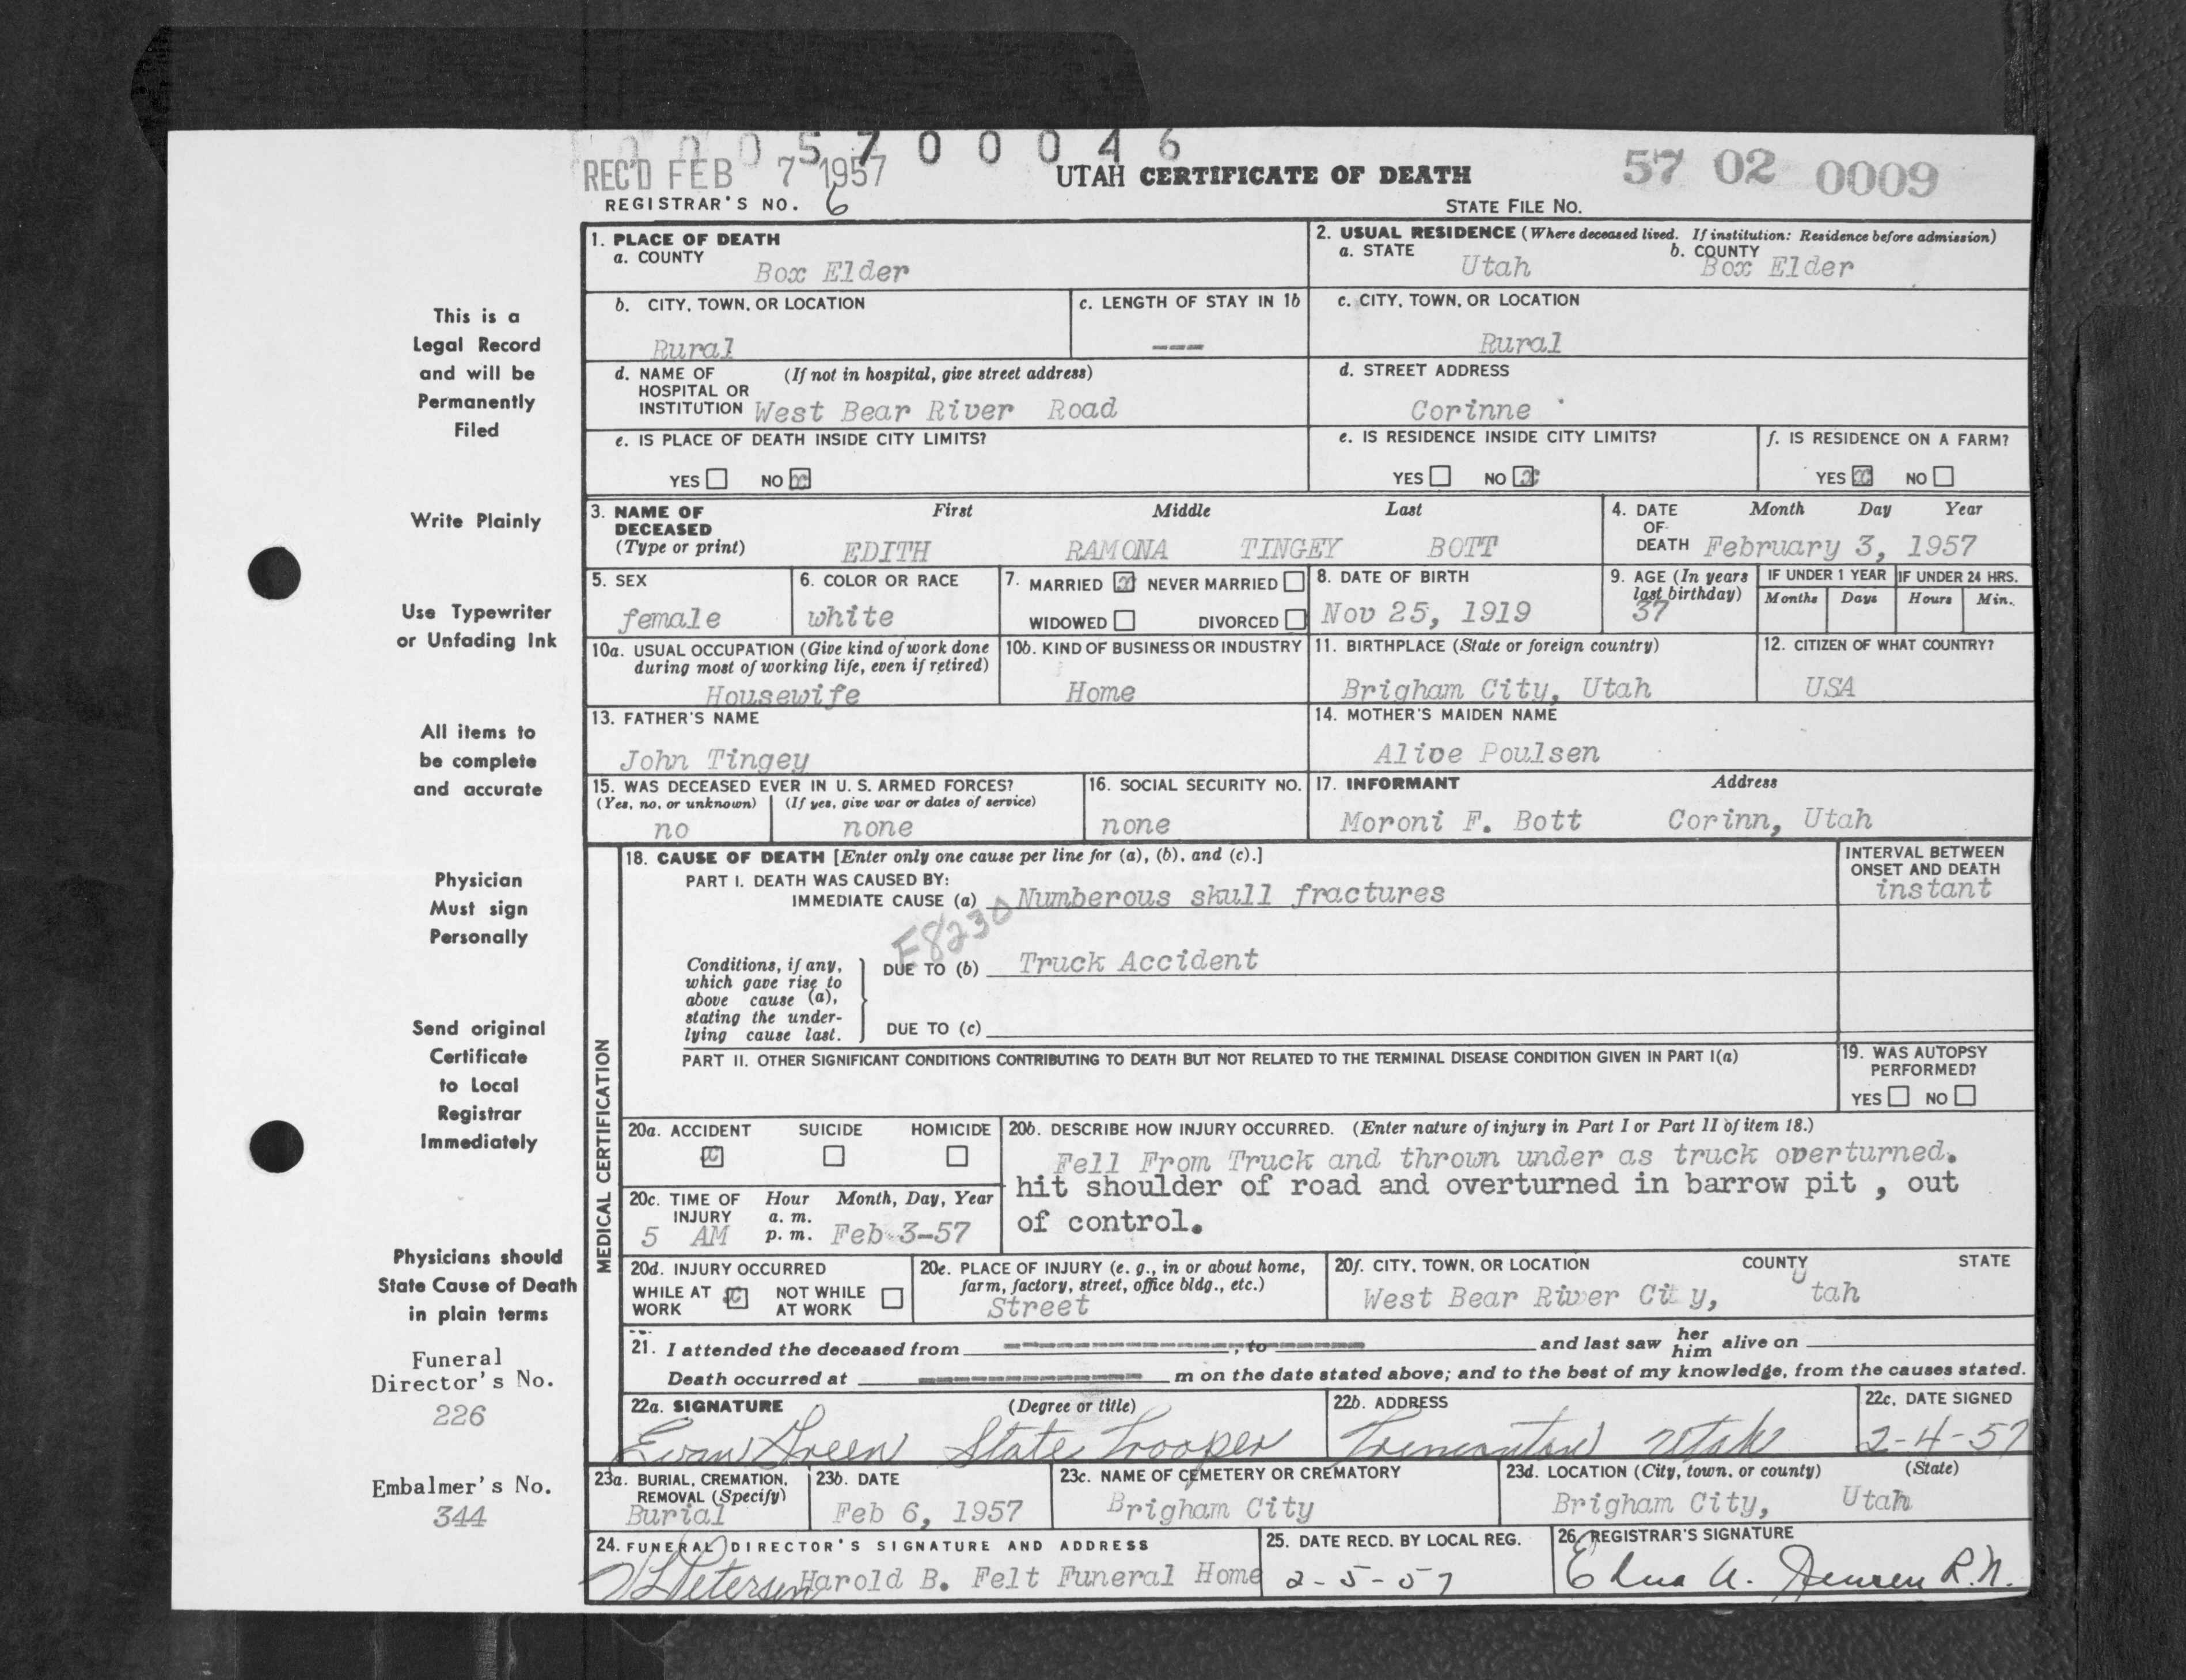 0 0 0 5 7 0 0 0 4 6
REC'D FEB 7 1957 UTAH CERTIFICATE OF DEATH 57 02 0009
REGISTRAR'S NO. 6 STATE FILE NO.
This is a
Legal Record
and will be
Permanently
Filed
Write Plainly
Use Typewriter
or Unfading Ink
All items to
be complete
and accurate
Physician
Must sign
Personally
Send original
Certificate
to Local
Registrar
Immediately
Physicians should
State Cause of Death
in plain terms
Funeral
Director's No.
226
Embalmer's No.
344
1. PLACE OF DEATH
a. COUNTY
Box Elder
2. USUAL RESIDENCE (Where deceased lived. If institution: Residence before admission)
a. STATE b. COUNTY
Utah Box Elder
b. CITY, TOWN, OR LOCATION
Rural
c. LENGTH OF STAY IN 1b
---
c. CITY, TOWN, OR LOCATION
Rural
d. NAME OF (If not in hospital, give street address)
HOSPITAL OR
INSTITUTION West Bear River Road
d. STREET ADDRESS
Corinne
e. IS PLACE OF DEATH INSIDE CITY LIMITS?
YES NO x
e. IS RESIDENCE INSIDE CITY LIMITS?
YES NO x
f. IS RESIDENCE ON A FARM?
YES x NO
3. NAME OF First Middle Last
DECEASED
(Type or print) EDITH RAMONA TINGEY BOTT
4. DATE Month Day Year
OF
DEATH February 3, 1957
5. SEX
female
6. COLOR OR RACE
white
7. MARRIED x NEVER MARRIED
WIDOWED DIVORCED
8. DATE OF BIRTH
Nov 25, 1919
9. AGE (In years
last birthday)
37
IF UNDER 1 YEAR IF UNDER 24 HRS.
Months Days Hours Min.
10a. USUAL OCCUPATION (Give kind of work done
during most of working life, even if retired)
Housewife
10b. KIND OF BUSINESS OR INDUSTRY
Home
11. BIRTHPLACE (State or foreign country)
Brigham City, Utah
12. CITIZEN OF WHAT COUNTRY?
USA
13. FATHER'S NAME
John Tingey
14. MOTHER'S MAIDEN NAME
Alive Poulsen
15. WAS DECEASED EVER IN U. S. ARMED FORCES?
(Yes, no, or unknown) (If yes, give war or dates of service)
no none
16. SOCIAL SECURITY NO.
none
17. INFORMANT Address
Moroni F. Bott Corinn, Utah
MEDICAL CERTIFICATION
18. CAUSE OF DEATH [Enter only one cause per line for (a), (b), and (c).]
PART I. DEATH WAS CAUSED BY:
IMMEDIATE CAUSE (a) Numberous skull fractures
INTERVAL BETWEEN
ONSET AND DEATH
instant
E8230
Conditions, if any,
which gave rise to
above cause (a),
stating the under-
lying cause last.
DUE TO (b) Truck Accident
DUE TO (c)
PART II. OTHER SIGNIFICANT CONDITIONS CONTRIBUTING TO DEATH BUT NOT RELATED TO THE TERMINAL DISEASE CONDITION GIVEN IN PART I(a)
19. WAS AUTOPSY
PERFORMED?
YES NO
20a. ACCIDENT SUICIDE HOMICIDE
x
20b. DESCRIBE HOW INJURY OCCURRED. (Enter nature of injury in Part I or Part II of item 18.)
Fell From Truck and thrown under as truck overturned.
hit shoulder of road and overturned in barrow pit , out
of control.
20c. TIME OF Hour Month, Day, Year
INJURY a. m.
5 AM p. m. Feb 3-57
20d. INJURY OCCURRED
WHILE AT x NOT WHILE
WORK AT WORK
20e. PLACE OF INJURY (e. g., in or about home,
farm, factory, street, office bldg., etc.)
Street
20f. CITY, TOWN, OR LOCATION COUNTY STATE
West Bear River City, Utah
21. I attended the deceased from ----------, to ---------- and last saw her him alive on
Death occurred at ---------- m on the date stated above; and to the best of my knowledge, from the causes stated.
22a. SIGNATURE (Degree or title)
Evan Green State Trooper
22b. ADDRESS
Tremonton Utah
22c. DATE SIGNED
2-4-57
23a. BURIAL, CREMATION,
REMOVAL (Specify)
Burial
23b. DATE
Feb 6, 1957
23c. NAME OF CEMETERY OR CREMATORY
Brigham City
23d. LOCATION (City, town, or county) (State)
Brigham City, Utah
24. FUNERAL DIRECTOR'S SIGNATURE AND ADDRESS
Petersen Harold B. Felt Funeral Home
25. DATE RECD. BY LOCAL REG.
2-5-57
26. REGISTRAR'S SIGNATURE
Edna A. Jensen R.N.